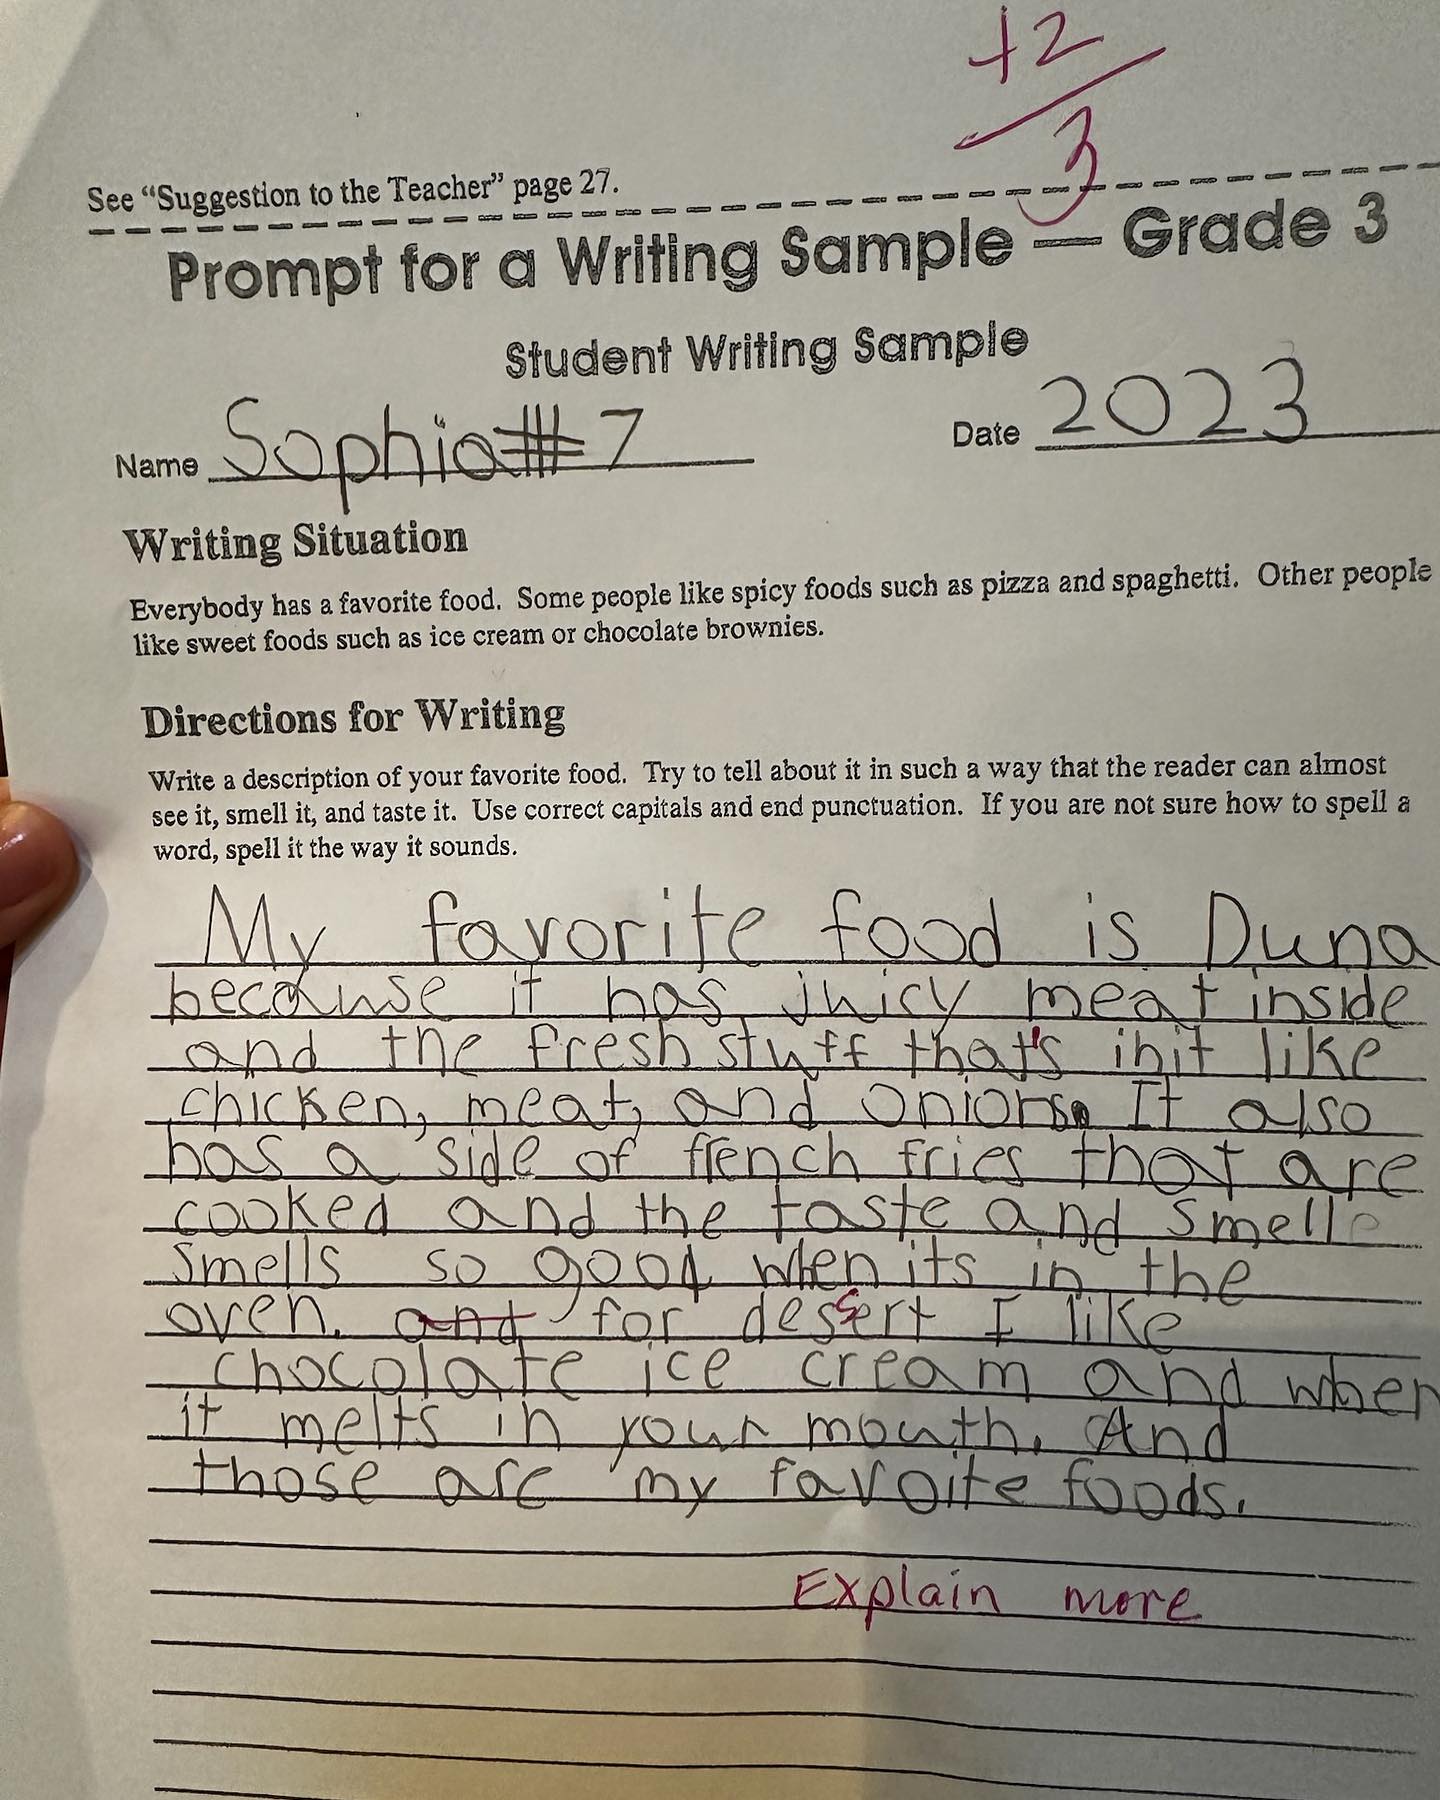 +2/3
See “Suggestion to the Teacher” page 27.
Prompt for a Writing Sample — Grade 3
Student Writing Sample
Name Sophia#7 Date 2023
Writing Situation
Everybody has a favorite food. Some people like spicy foods such as pizza and spaghetti. Other people
like sweet foods such as ice cream or chocolate brownies.
Directions for Writing
Write a description of your favorite food. Try to tell about it in such a way that the reader can almost
see it, smell it, and taste it. Use correct capitals and end punctuation. If you are not sure how to spell a
word, spell it the way it sounds.
My favorite food is Duna
because it has juicy meat inside
and the fresh stuff that's init like
chicken, meat, and onions. It also
has a side of french fries that are
cooked and the taste and smell
smells so good when its in the
oven. and for dessert I like
chocolate ice cream and when
it melts in your mouth. And
those are my favoite foods.
Explain more